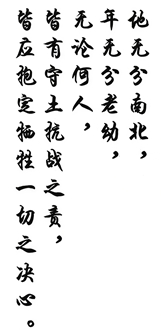 地无分南北，
年无分老幼，
无论何人，
皆有守土抗战之责，
皆应抱定牺牲一切之决心。